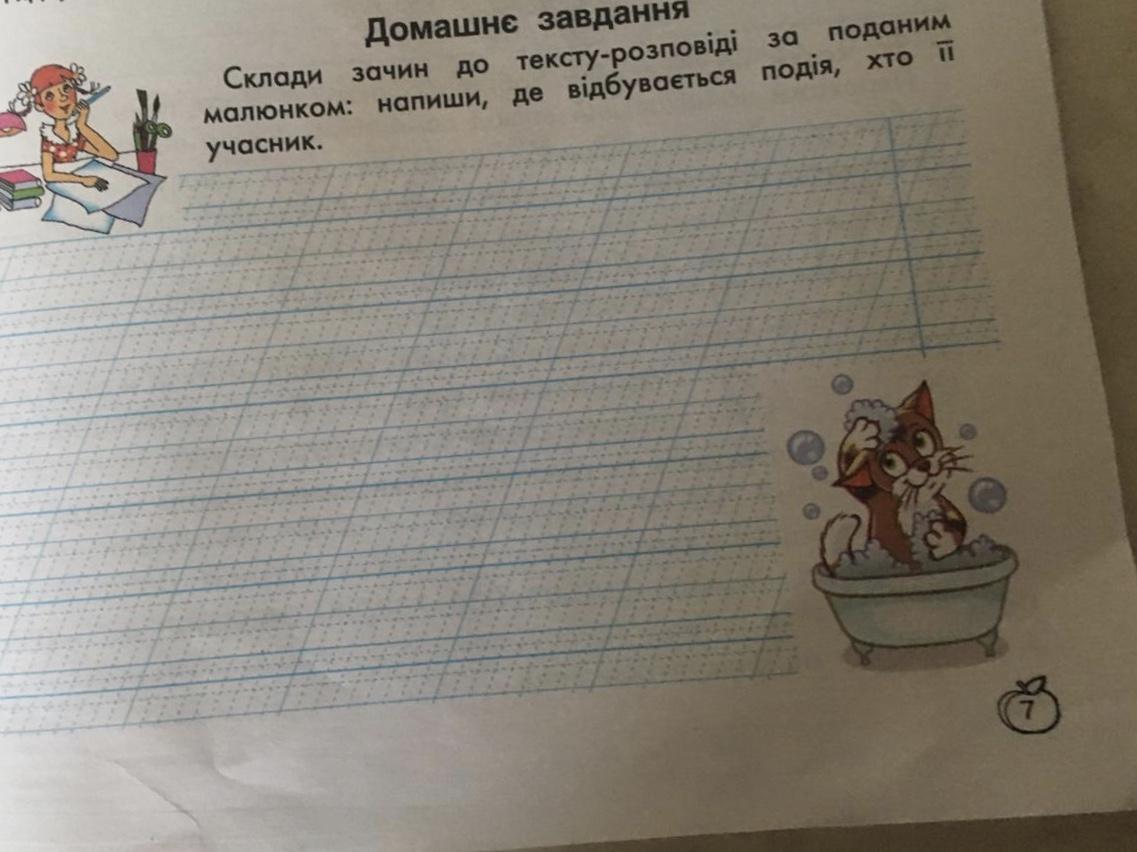 Домашнє завдання
Склади зачин до тексту-розповіді за поданим
малюнком: напиши, де відбувається подія, хто її
учасник.
7